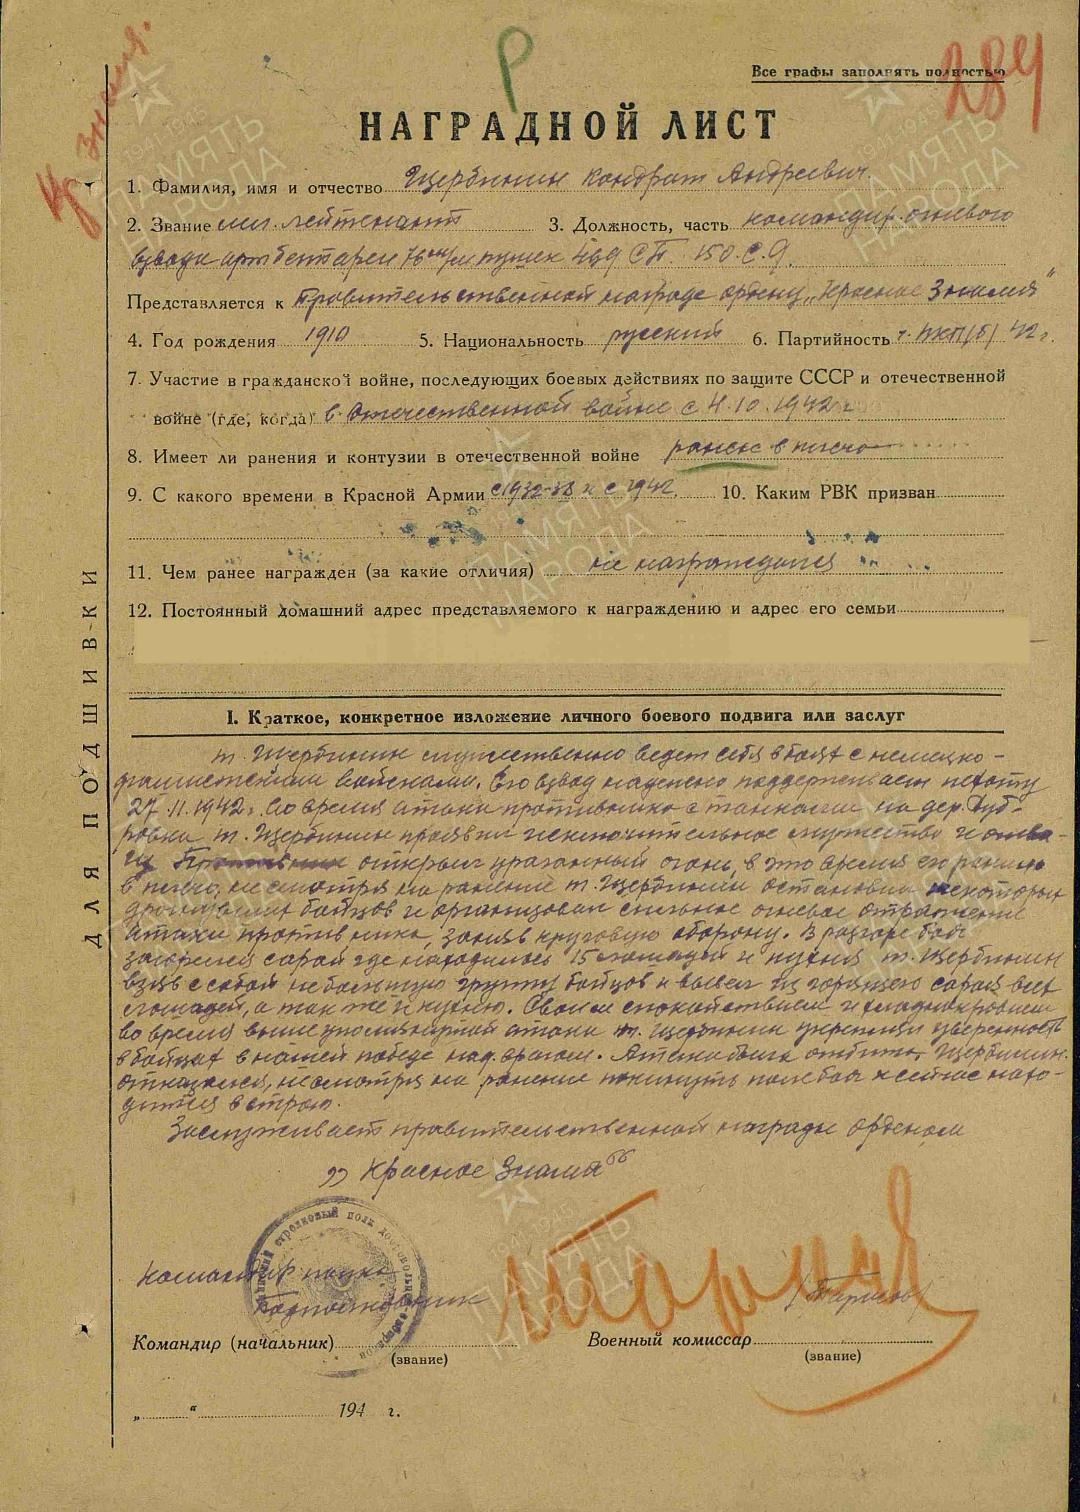 Кр. знамя.
Р
Все графы заполнять полностью
284
НАГРАДНОЙ ЛИСТ
1. Фамилия, имя и отчество Щербинин Кондрат Андреевич.
2. Звание мл. лейтенант 3. Должность, часть командир огневого
взвода арт.батареи 76 м/м пушек 469 СП 150 С.Д.
Представляется к Правительственной награде ордену „Красное Знамя"
4. Год рождения 1910 5. Национальность русский 6. Партийность ВКП(б) 42 г.
7. Участие в гражданской войне, последующих боевых действиях по защите СССР и отечественной
войне (где, когда) в Отечественной войне с 4.10.1942 г.
8. Имеет ли ранения и контузии в отечественной войне ранен в плечо
9. С какого времени в Красной Армии с 1932-38 и с 1942 10. Каким РВК призван
11. Чем ранее награжден (за какие отличия) не награждался
12. Постоянный домашний адрес представляемого к награждению и адрес его семьи
ДЛЯ ПОДШИВКИ
I. Краткое, конкретное изложение личного боевого подвига или заслуг
т. Щербинин мужественно ведет себя в боях с немецко-
фашистскими войсками. Его взвод надежно поддерживает пехоту
27.11.1942 г. во время атаки противника с танками на дер. Дуб-
ровка т. Щербинин проявил исключительное мужество и отва-
гу открыл ураганный огонь, в это время его ранило
в плечо, несмотря на ранение т. Щербинин остановил некоторых
бойцов и организовал сильное огневое отражение
атаки противника, заняв круговую оборону. В разгаре боя
загорелся сарай где находилось 15 лошадей и кухня т. Щербинин
взяв с собой небольшую группу бойцов и вывел из горящего сарая всех
лошадей, а так же и кухню. Своим спокойствием и хладнокровием
во время вышеупомянутой атаки т. Щербинин укрепил уверенность
в бойцах в нашей победе над врагом. Атака была отбита, Щербинин
отказался, несмотря на ранение покинуть поле боя и сейчас нахо-
дится в строю.
Заслуживает правительственной награды орденом
„Красное Знамя"
Командир полка
Подполковник
Командир (начальник)
(звание)
Военный комиссар
(звание)
„ " 194 г.
ПАМЯТЬ
НАРОДА